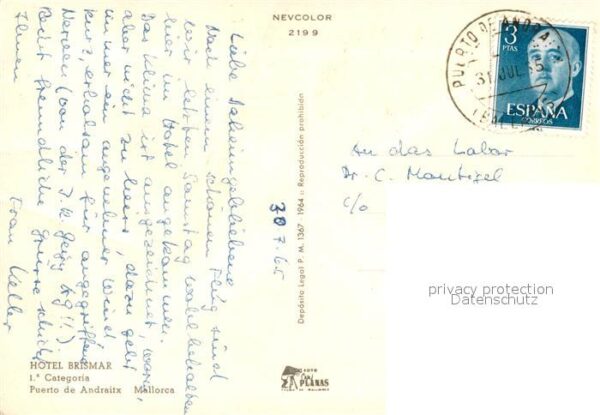 NEVCOLOR
2199
Liebe Daheimgebliebene
Nach einem schönen Flug sind
wir letzten Samstag wohlbehalten
hier im Hotel angekommen.
Das Klima ist ausgezeichnet, warm,
aber nicht zu heiss, dazu geht
immer ein angenehmer Wind
kurz, erholsam für angegriffene
Nerven (von der J.R. Geigy AG!!)
Recht freundliche Grüsse schickt
Ihnen
Frau Keller
30 7.65
HOTEL BRISMAR
1.ª Categoría
Puerto de Andraitx Mallorca
Depósito Legal P. M. 1367 - 1964 :: Reproducción prohibida
PLANAS
PUERTO DE ANDRA
31 JUL 65
3
PTAS
ESPAÑA
CORREOS
An das Labor
Dr. C.
c/o
privacy protection
Datenschutz